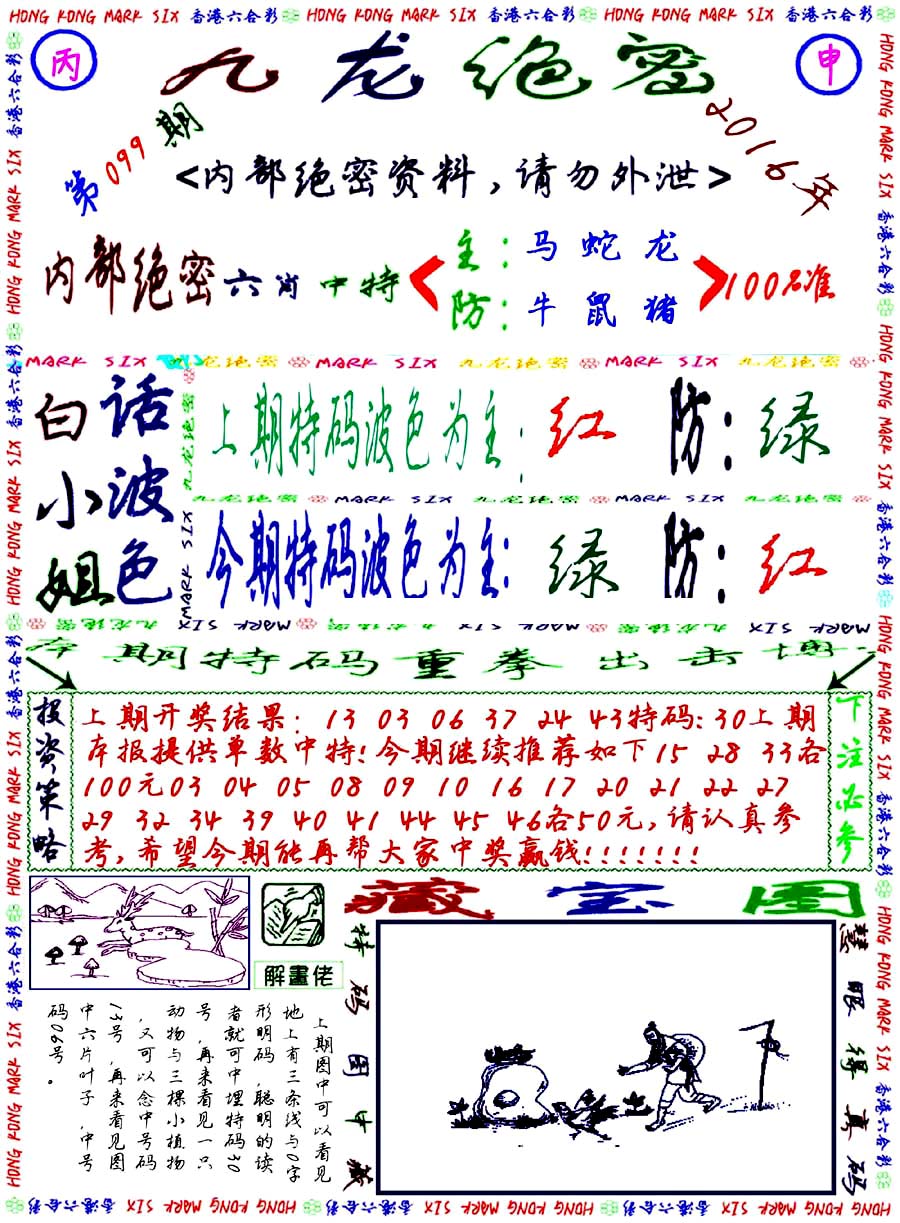 HONG KONG MARK SIX 香港六合彩 HONG KONG MARK SIX 香港六合彩 HONG KONG MARK SIX 香港六合彩
丙
九龙绝密
申
第099期
2016年
<内部绝密资料,请勿外泄>
内部绝密六肖中特
主:马蛇龙
防:牛鼠猪
100%准
MARK SIX 九龙绝密 MARK SIX 九龙绝密 MARK SIX 九龙绝密
白小姐
话波色
上期特码波色为主:红 防:绿
九龙绝密 MARK SIX 九龙绝密 MARK SIX 九龙绝密
今期特码波色为主:绿 防:红
九龙绝密 MARK SIX 九龙绝密 MARK SIX 九龙绝密 MARK SIX
本期特码重拳出击博一
投资策略
上期开奖结果: 13 03 06 37 24 43特码:30上期
本报提供单数中特!今期继续推荐如下15 28 33各
100元03 04 05 08 09 10 16 17 20 21 22 27
29 32 34 39 40 41 44 45 46各50元,请认真参
考,希望今期能再帮大家中奖赢钱!!!!!!!
下注必参
解畫佬
藏宝图
特码图中藏
慧眼得真码
上期图中可以看见
地上有三条线与0字
形明码,聪明的读
者就可中埋特码30
号,再来看见一只
动物与三棵小植物
,又可以念中号码
13号,再来看见图
中六片叶子,中号
码06号。
HONG KONG MARK SIX 香港六合彩 HONG KONG MARK SIX 香港六合彩 HONG KONG MARK SIX 香港六合彩